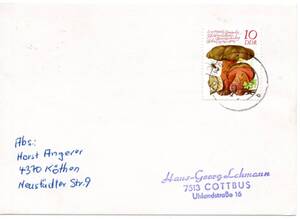 10
DDR
Abs:
Horst Angerer
4370 Köthen
Neustädter Str. 9
Hans-Georg Lehmann
7513 COTTBUS
Uhlandstraße 16